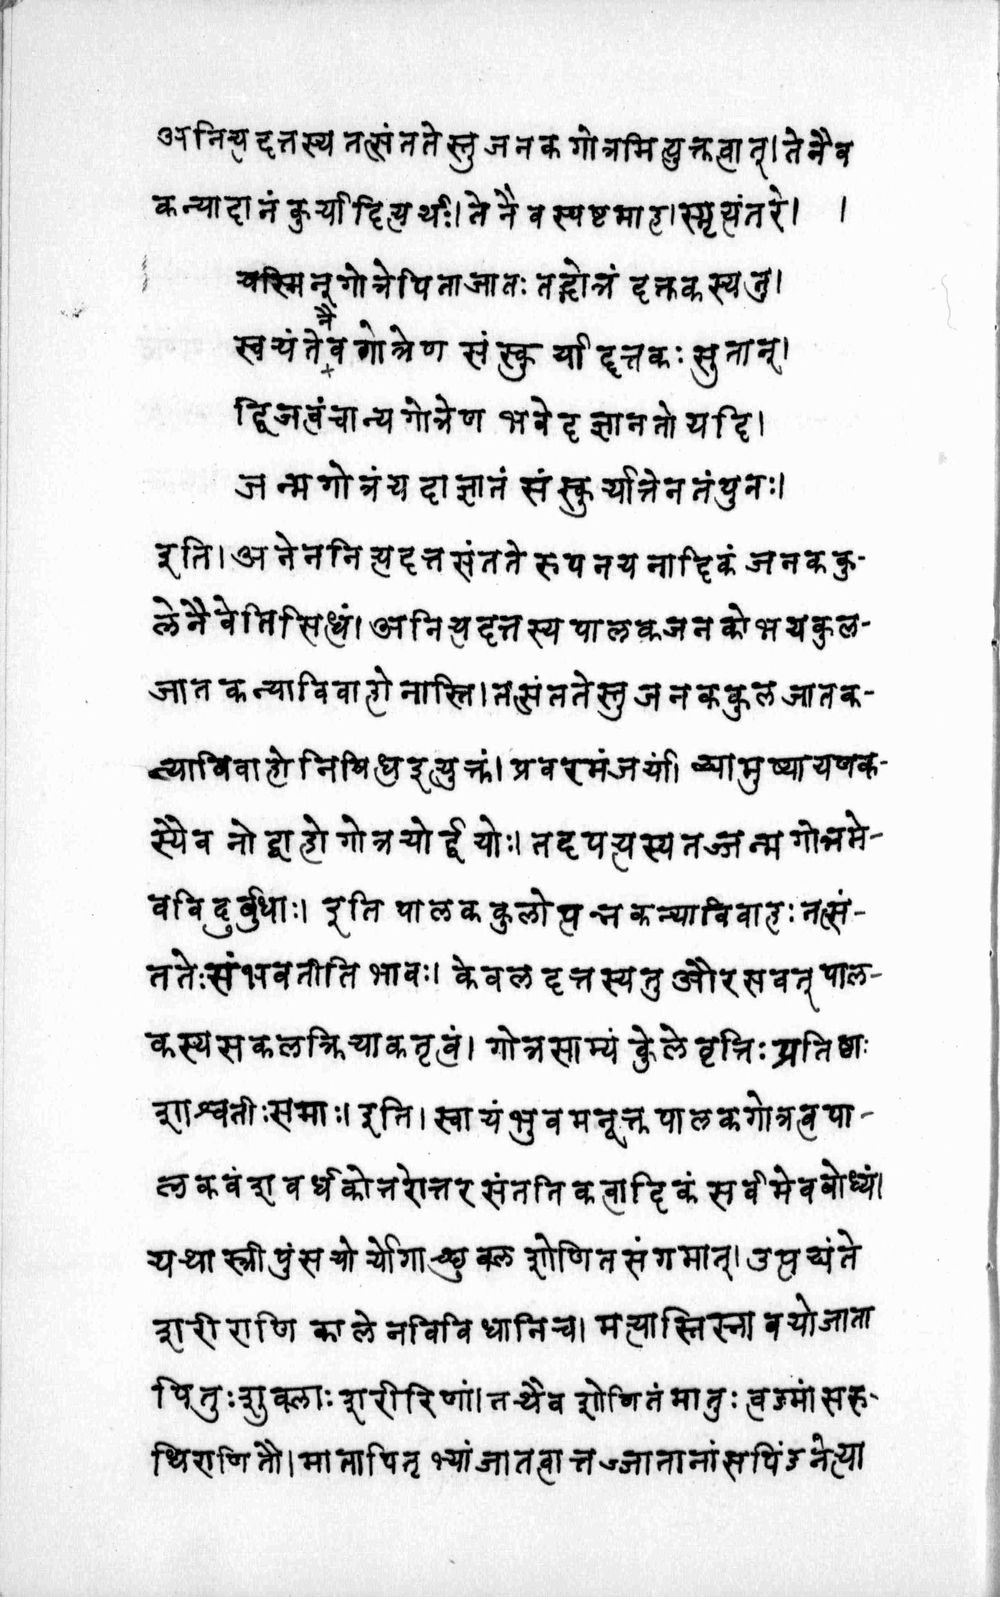 अनित्यदत्तस्य तत्संततेस्तु जनकगोत्रमित्युक्तत्वात्। तेनैव
कन्यादानं कुर्यादित्यर्थः। तेनैव स्पष्टमाह। स्मृत्यंतरे। ।
यस्मिन् गोत्रे पिता जातः तद्गोत्रं दत्तकस्य तु।
स्वयं तेनैव गोत्रेण संस्कुर्याद्दत्तकः सुतान्।
द्विजत्वं चान्यगोत्रेण भवेदज्ञानतो यदि।
जन्मगोत्रं यदा ज्ञातं संस्कुर्यात्तेन तं पुनः।
इति। अनेन नित्यदत्तसंततेरुपनयनादिकं जनककु-
लेनैवेति सिध्धं। अनित्यदत्तस्य पालकजनकोभयकुल-
जातकन्याविवाहो नास्ति। तत्संततेस्तु जनककुलजातक-
न्याविवाहो निषिध्ध इत्युक्तं। प्रवरमंजर्यां। व्द्यामुष्यायणक-
स्यैव नोद्वाहो गोत्रयोर्द्वयोः। तदपत्यस्य तज्जन्मगोत्रमे-
व विदुर्बुधाः। इति पालककुलोत्पन्नकन्याविवाहः तत्सं-
ततेः संभवतीति भावः। केवलदत्तस्य तु औरसवत् पाल-
कस्य सकलक्रियाकतृत्वं। गोत्रसाम्यं कुले वृत्तिः प्रतिष्ठाः
शाश्वतीः समाः। इति। स्वायंभुवमनूक्त पालकगोत्रत्व पा-
लकवंशवर्धकोत्तरोत्तरसंततिकत्वादिकं सर्वमेव बोध्यं।
यथा स्त्रीपुंसयोर्योगाच्छुक्लशोणितसंगमात्। उत्पद्यंते
शरीराणि कालेन विविधानि च। मत्यास्तिस्नावयो जाता
पितुः शुक्लाः शरीरिणां। तथैव शोणितं मातुः त्वङ्मांसरु-
धिराणि तौ। मातापितृभ्यां जातत्वात्तज्जातानां सपिंडनेत्या